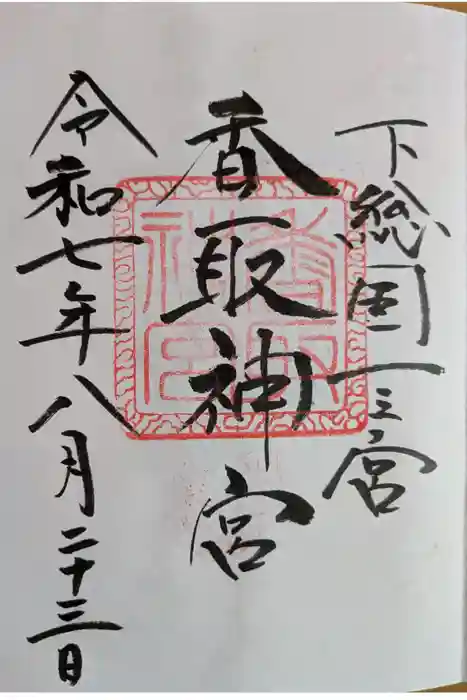 下総国一之宮
香取神宮
令和七年八月二十三日